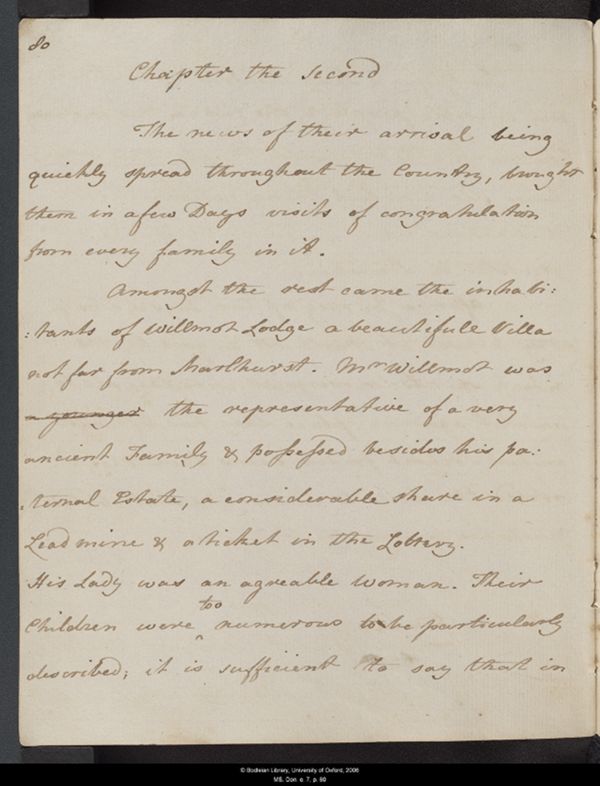 80
Chapter the second
The news of their arrival being
quickly spread throughout the Country, brought
them in a few Days visits of congratulation
from every family in it.
Amongst the rest came the inhabi:
:tants of Willmot Lodge a beautifull Villa
not far from Marlhurst. Mr Willmot was
a younger the representative of a very
ancient Family & possessed besides his pa:
:ternal Estate, a considerable share in a
Lead mine & a ticket in the Lottery.
His Lady was an agreable woman. Their
too
Children were ^ numerous to be particularly
described; it is sufficient to say that in
© Bodleian Library, University of Oxford, 2006
MS. Don. e. 7, p. 80